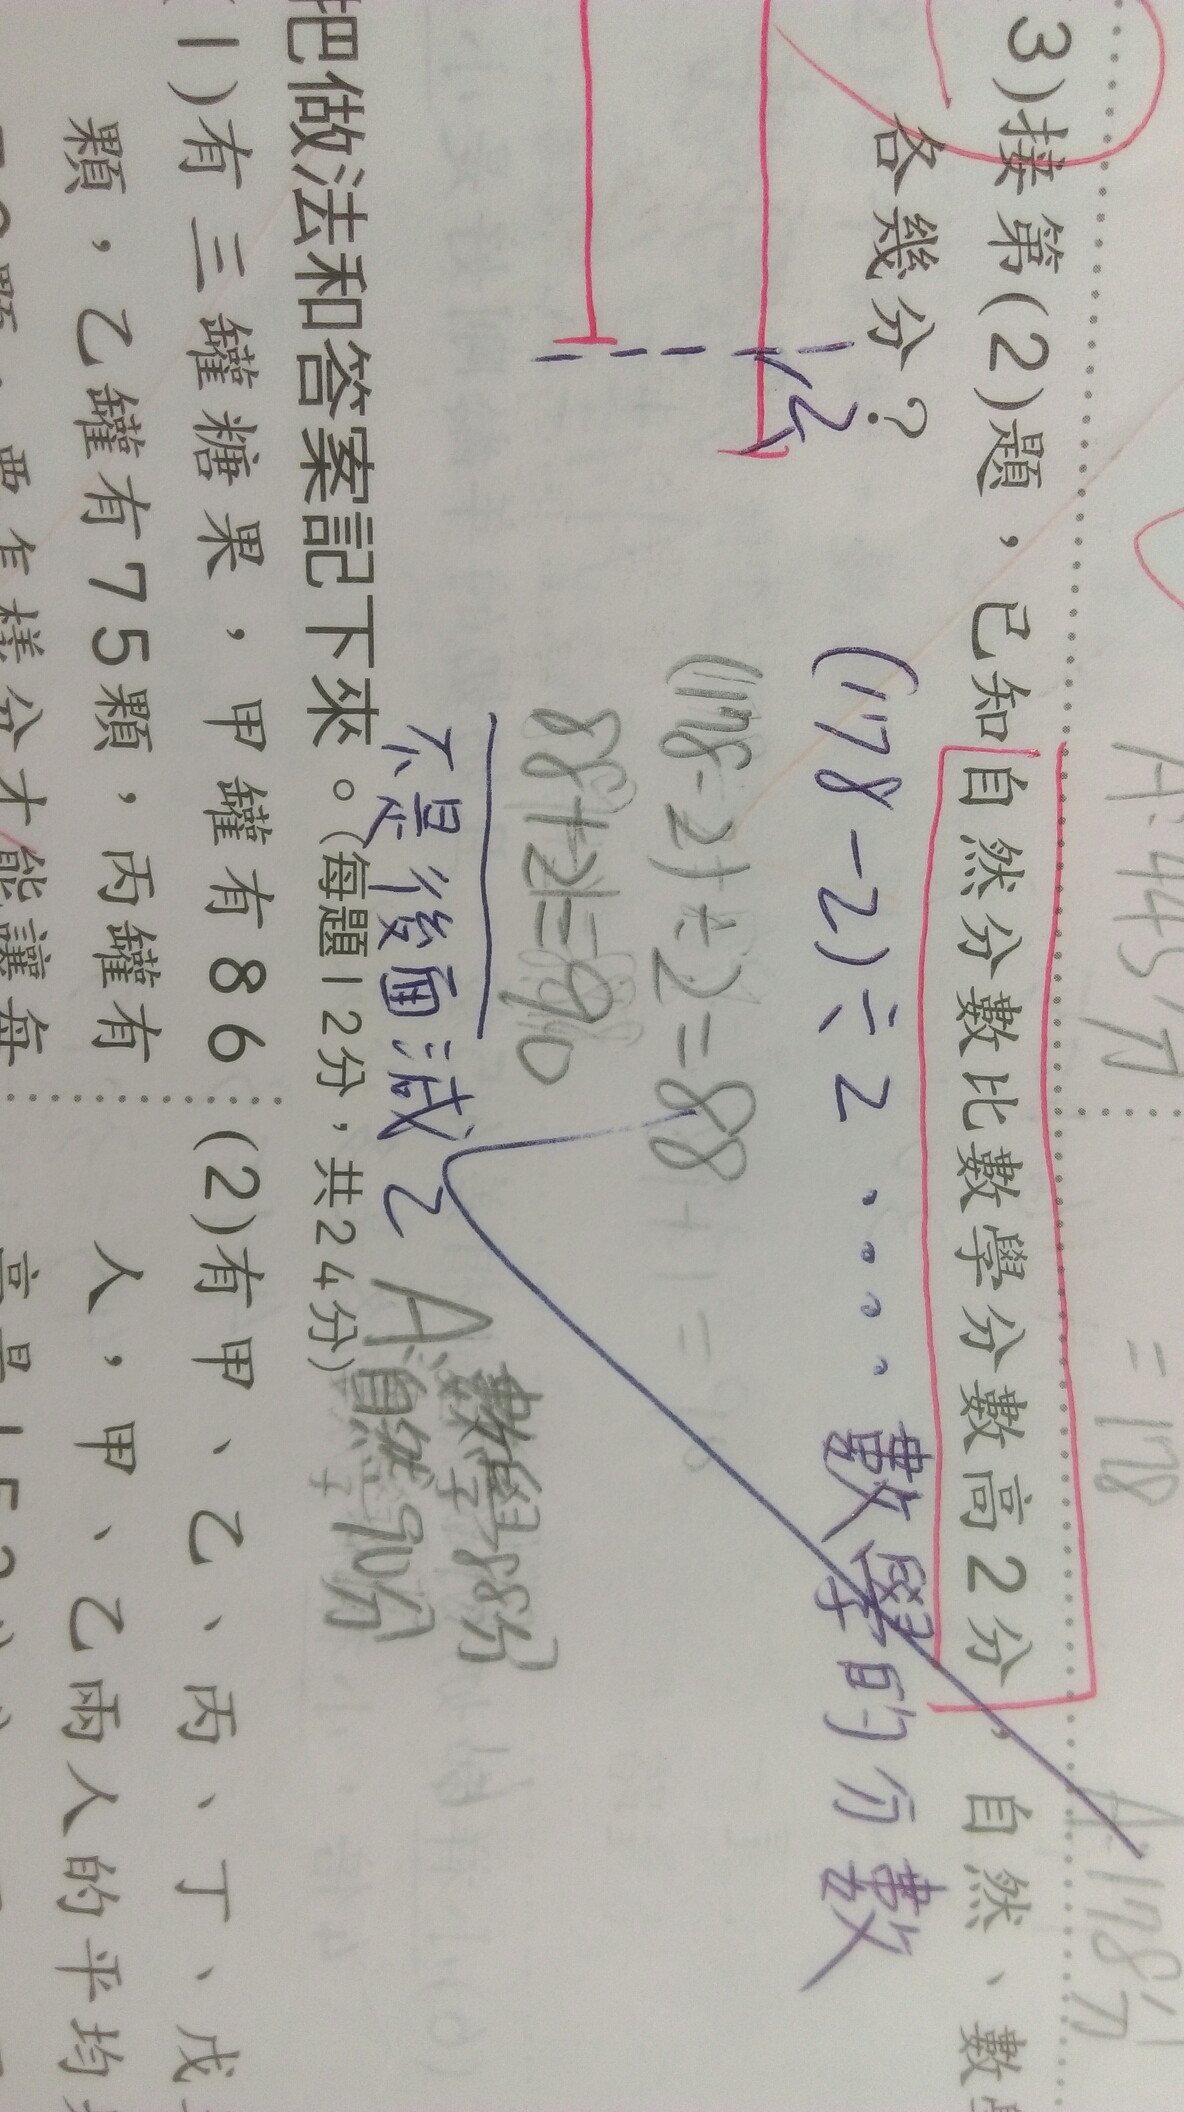 A:445分
=178
A:178分
3)接第(2)題，已知自然分數比數學分數高2分，自然、數學
各幾分？
(178-2)÷2....數學的分數
2分
(178-2)÷2=88
88+2=90
不是後面減2
A:數學88分
自然90分
把做法和答案記下來。(每題12分，共24分)
1)有三罐糖果，甲罐有86
顆，乙罐有75顆，丙罐有
顆，要怎樣分才能讓每
(2)有甲、乙、丙、丁、戊
人，甲、乙兩人的平均
高是15